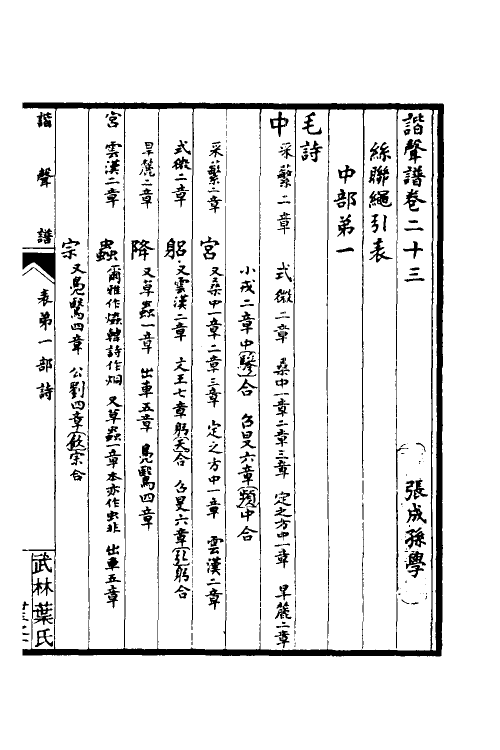 諧聲譜卷二十三 張成孫學
絲聯繩引表
中部第一
毛詩
中 采蘩二章 式微二章 桑中一章二章三章 定之方中一章 旱麓二章
小戎二章中(驂)合 召旻六章(頻)中合
采蘩二章 宮 又桑中一章二章三章 定之方中一章 雲漢二章
式微二章 躬 又雲漢二章 文王七章躬(天)合 召旻六章(引)躬合
旱麓二章 降 又草蟲一章 出車五章 鳧鷖四章
宮 雲漢二章 蟲 爾雅作爞韓詩作烔 又草蟲一章本亦作虫非 出車五章
宗 又鳧鷖四章 公劉四章(飲)宗合
諧聲譜 表第一部詩 武林葉氏